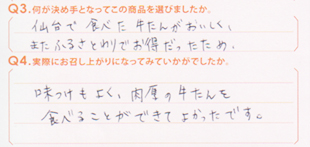 Q3.何が決め手となってこの商品を選びましたか。
仙台で食べた牛たんがおいしく、
またふるさとわりでお得だったため。
Q4.実際にお召し上がりになってみていかがでしたか。
味つけもよく、肉厚の牛たんを
食べることができてよかったです。